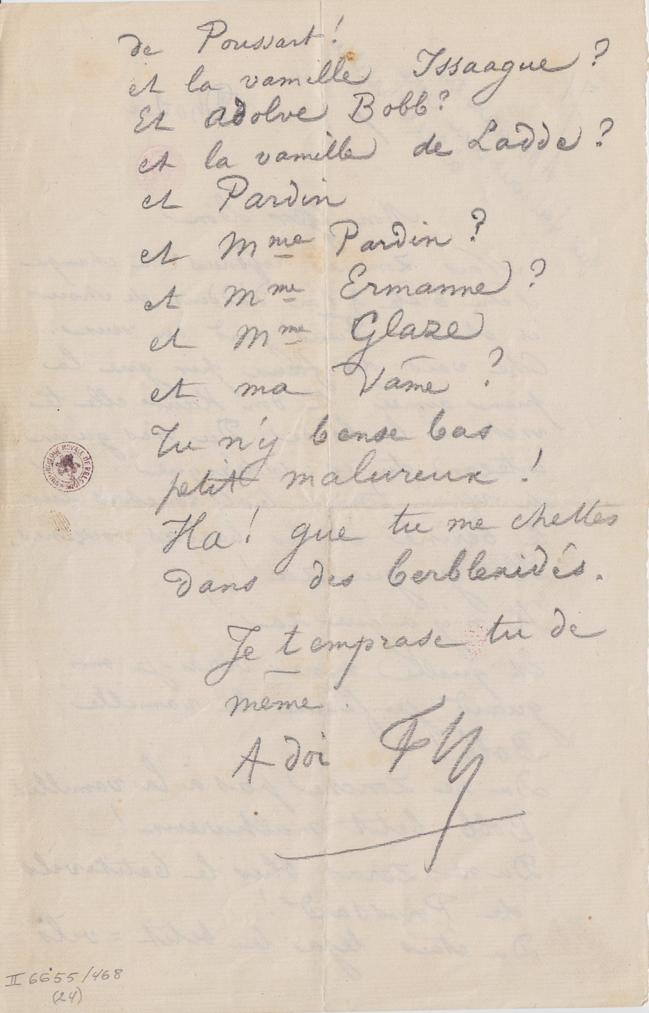 de Poussart !
et la vamille Issaague ?
Et adolve Bobb ?
et la vamille de Ladde ?
et Pardin
et Mme Pardin ?
et Mme Ermanne ?
et Mme Glaze
et ma Vame ?
Tu n'y bense bas
petit malureux !
Ha ! que tu me chettes
dans des berblexidés.
Je t'emprase tu de
même.
A doi
II 6655/468
(24)